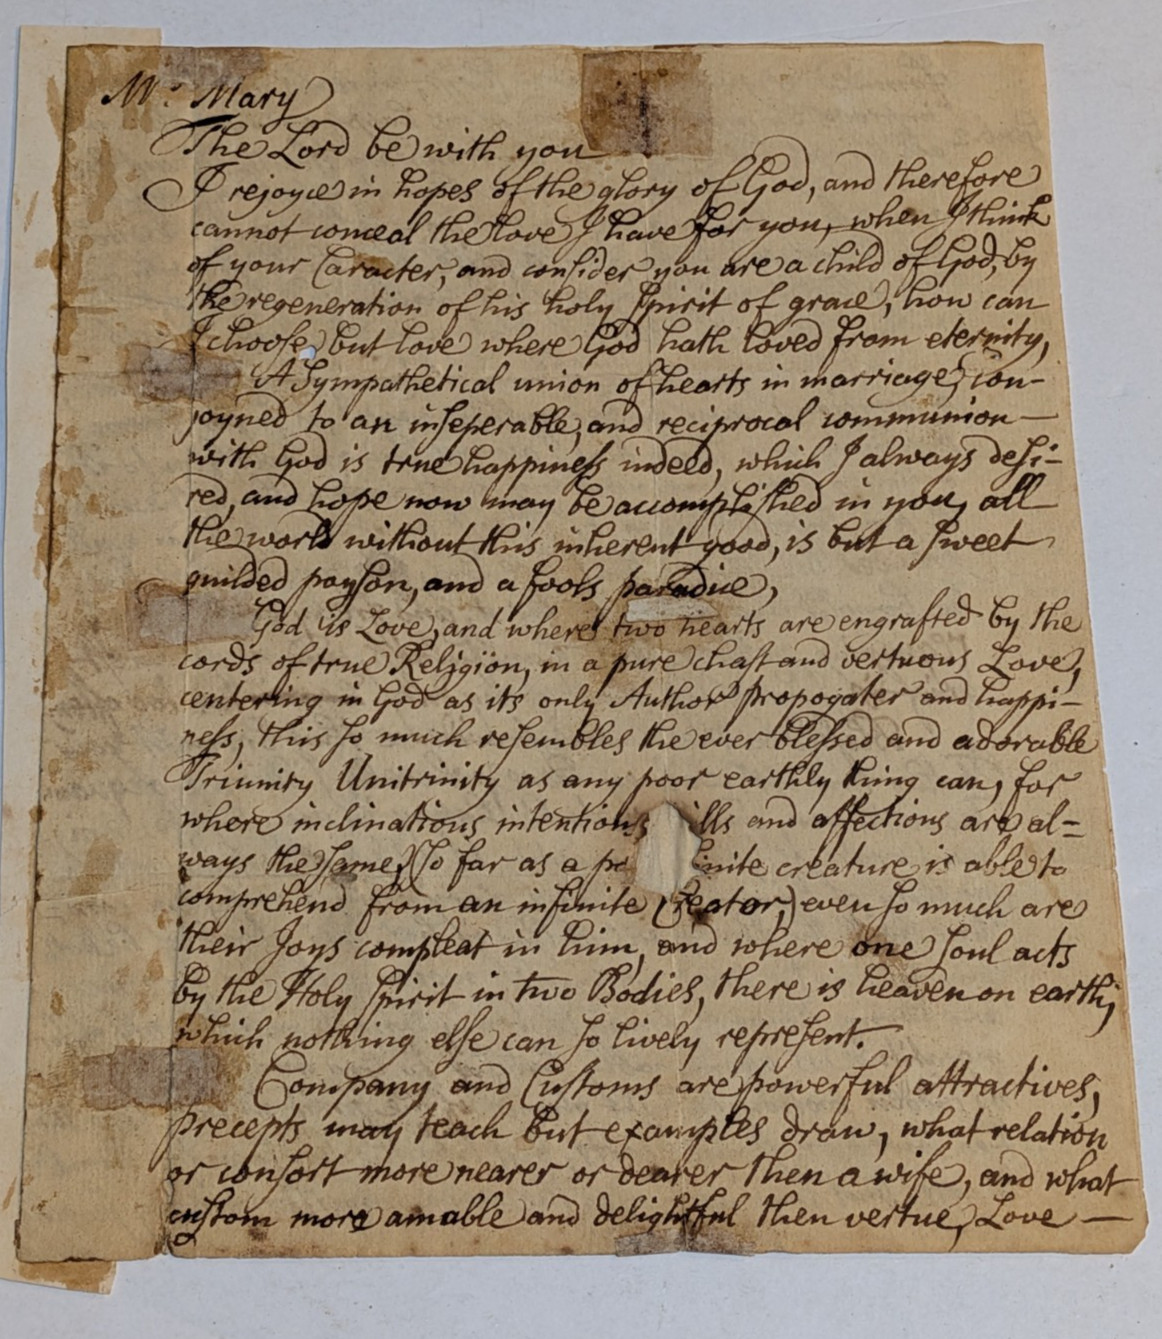 Mrs. Mary
The Lord be with you
I rejoyce in hopes of the glory of God, and therefore
cannot conceal the love I have for you, when I think
of your Caracter, and consider you are a child of God, by
the regeneration of his holy spirit of grace, how can
I choose but love where God hath loved from eternity,
A Sympathetical union of hearts in marriage, con-
joyned to an inseperable, and reciprocal communion
with God is true happiness indeed, which I always desi-
red, and hope now may be accomplished in you, all
the world without this inherent good, is but a sweet
guilded poyson, and a fools paradice,
God is Love, and where two hearts are engrafted by the
cords of true Religion, in a pure chast and vertuous Love,
centering in God as its only Author propogater and happi-
ness, this so much resembles the ever blessed and adorable
Triunity Unitrinity as any poor earthly thing can, for
where inclinations intentions ills and affections are al=
ways the same, (so far as a po inite creature is able to
comprehend from an infinite Creator,) even so much are
their Joys compleat in him, and where one soul acts
by the Holy spirit in two Bodies, there is heaven on earth,
which nothing else can so lively represent.
Company and Customs are powerful attractives,
precepts may teach but examples draw, what relation
or consort more nearer or dearer then a wife, and what
custom more amable and delightful then vertue, Love —